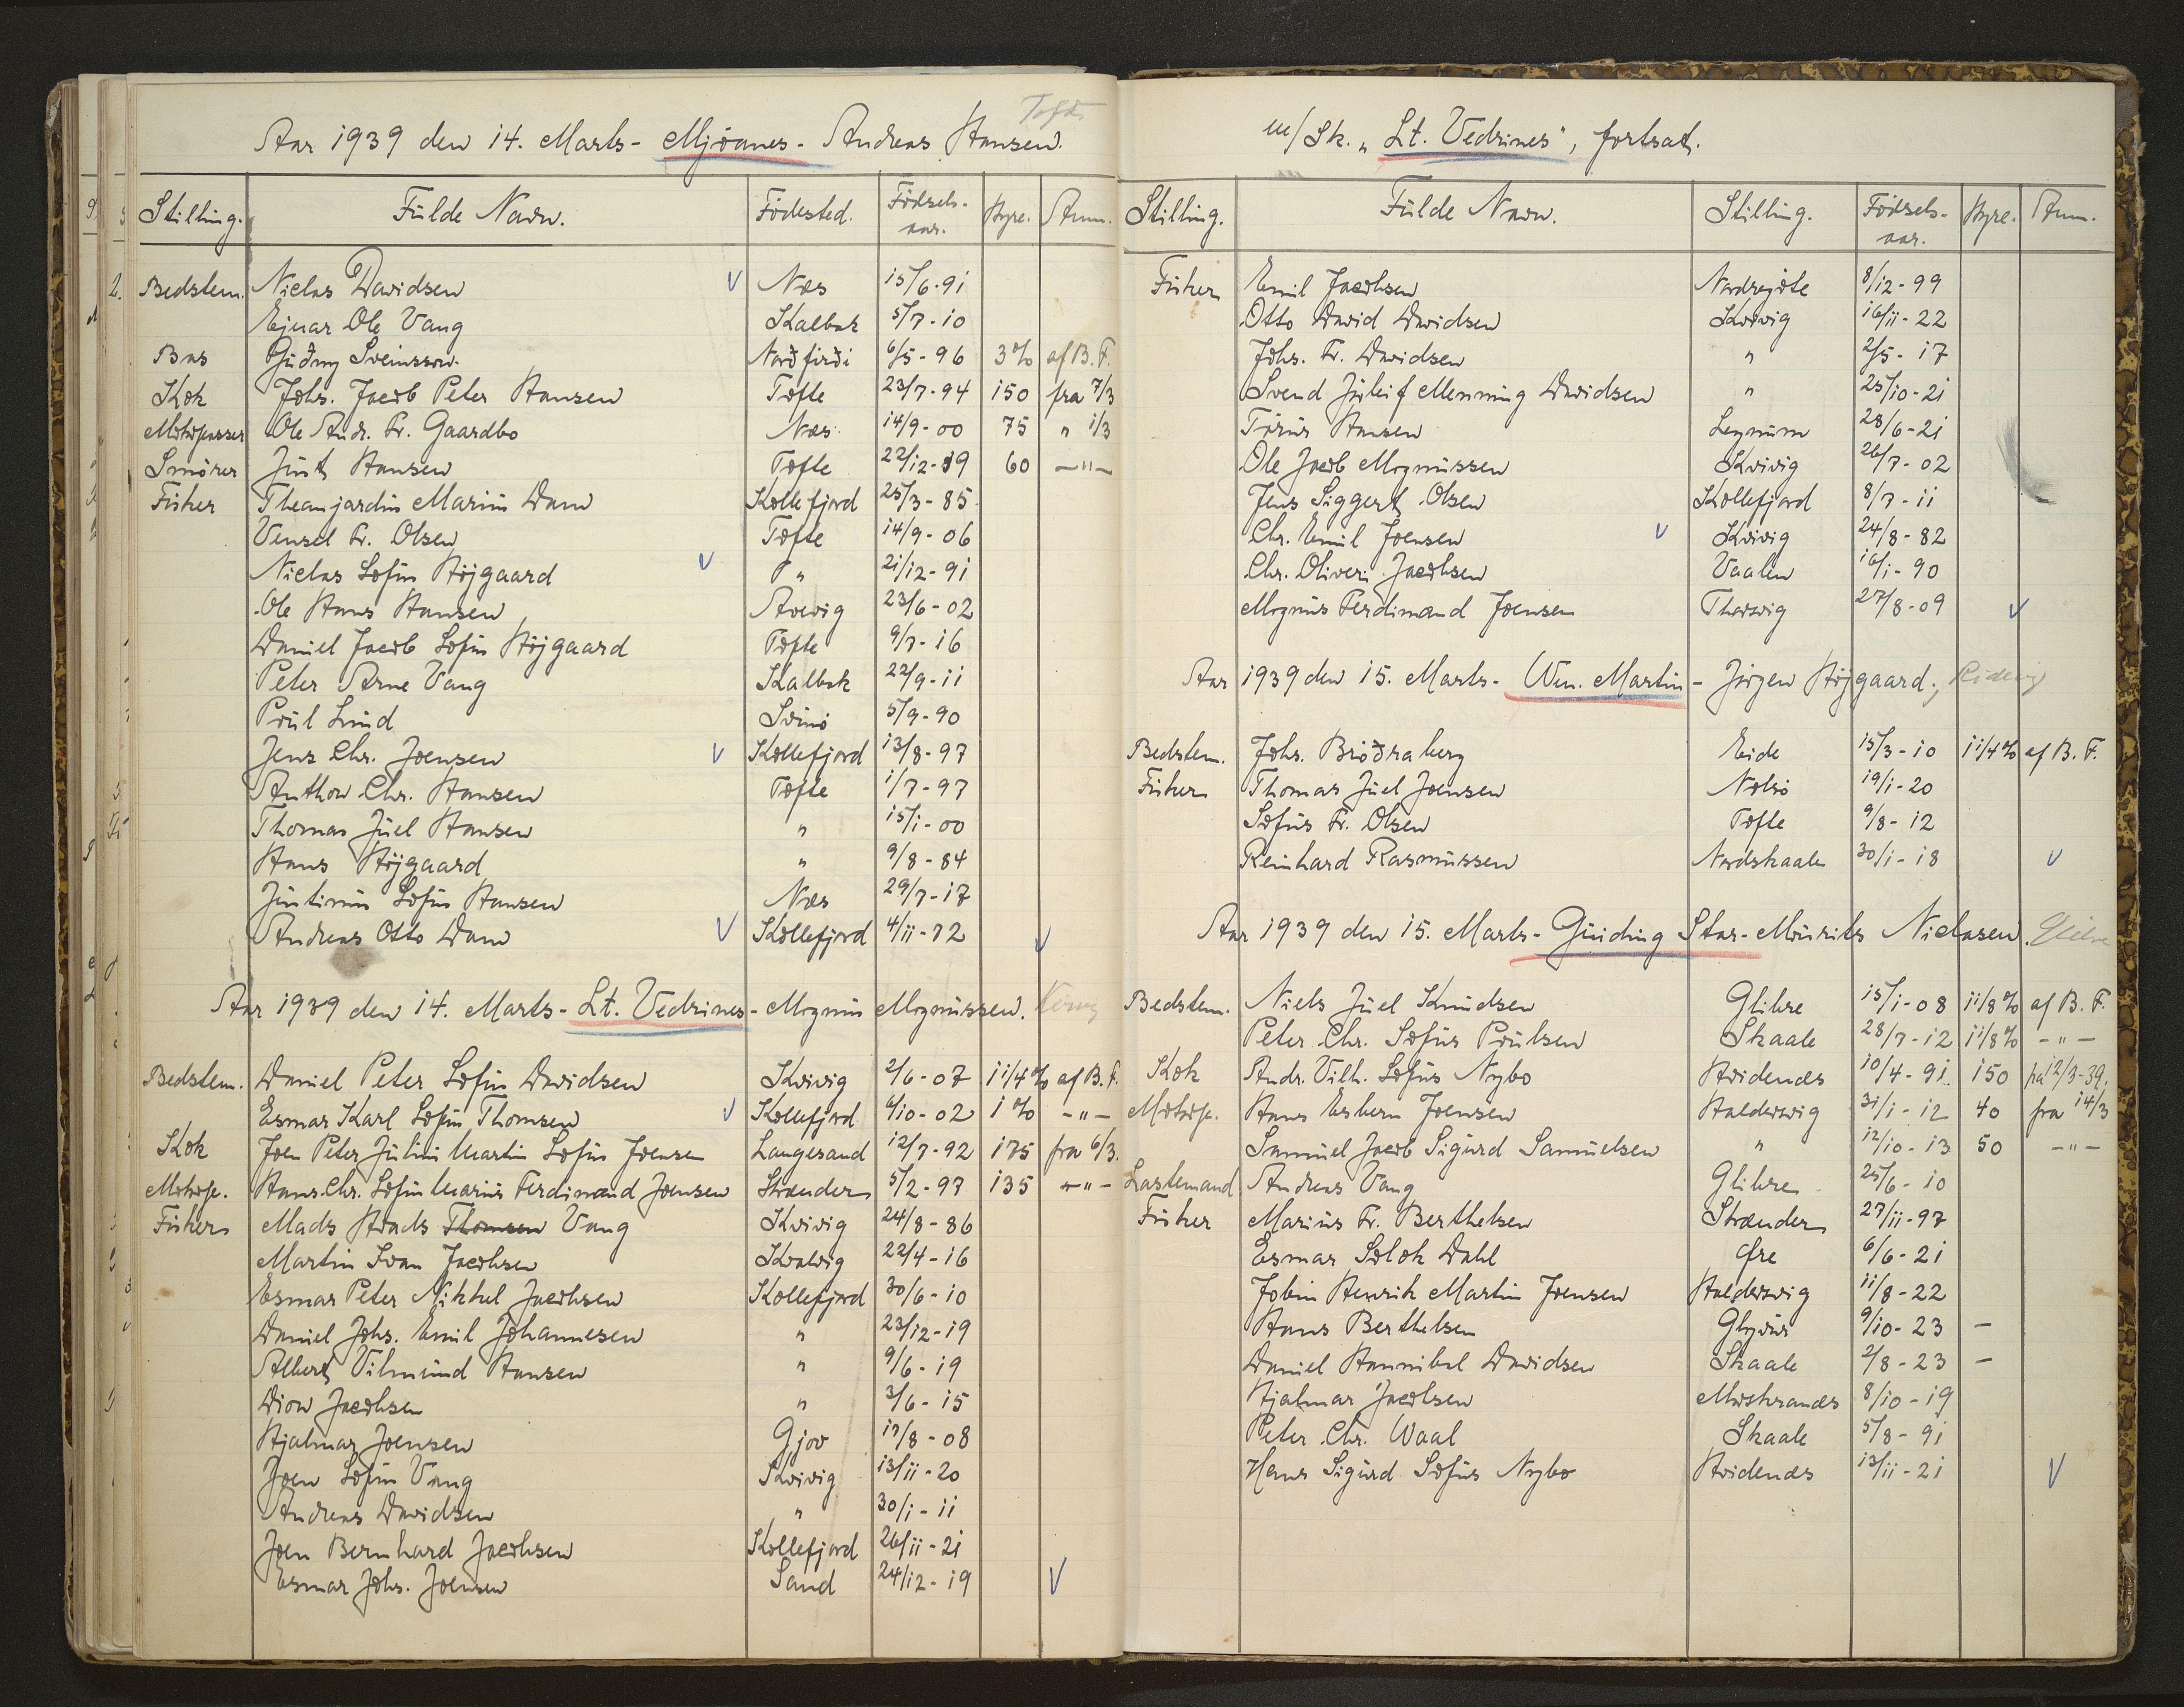 Aar 1939 den 14. Marts - Mjóanes - Andreas Hansen. Tofte
Stilling. Fulde Navn. Födested. Födsels-aar. Hyre. Anm.
Bedstem. Niclas Davidsen V Næs 15/6-91
Ejnar Ole Vang Kalbak 5/7-10
Bas Guðmy Sveinsson Norðfirði 6/5-96 3% af B.F.
Kok Johs. Jacob Peter Hansen Tofte 23/7-94 150 fra 7/3
Motorpasser Ole Andr. Fr. Gaardbo Næs 14/9-00 75 " 1/3
Smörer Just Hansen Tofte 22/12-19 60 -"-
Fisker Theamjardin Marius Dam Kollefjord 25/3-85
Vensel Fr. Olsen Tofte 14/9-06
Niclas Sofus Höjgaard V " 21/12-91
Ole Hans Hansen Arevig 23/6-02
Daniel Jacob Sofus Höjgaard Tofte 9/7-16
Peter Arne Vang Kalbak 22/9-11
Poul Lund Svinö 5/9-90
Jens Chr. Joensen V Kollefjord 13/8-97
Anthon Chr. Hansen Tofte 1/7-97
Thomas Juel Hansen " 15/1-00
Hans Höjgaard " 9/8-84
Justinus Sofus Hansen Næs 29/7-17
Andreas Otto Dam V Kollefjord 4/11-72 V
Aar 1939 den 14. Marts - Lt. Vedrines - Magnus Magnussen.
Bedstem. Daniel Peter Sofus Davidsen Kvivig 2/6-07 1 1/4% af B.F.
Esmar Karl Sofus Thomsen V Kollefjord 6/10-02 1% -"-
Kok Joen Peter Julius Martin Sofus Joensen Langesand 12/7-92 175 fra 6/3.
Motorp. Hans Chr. Sofus Marius Ferdinand Joensen Strænder 5/2-97 135 -"-
Fisker Mads Thomsen Vang Kvivig 24/8-86
Martin Ivan Jacobsen Kvalvig 22/4-16
Esmar Peter Nikkel Jacobsen Kollefjord 30/6-10
Daniel Johs. Emil Johannesen " 23/12-19
Albert Vilmund Hansen " 9/6-19
Dion Jacobsen " 3/6-15
Hjalmar Joensen Gjov 17/8-08
Joen Sofus Vang Kvivig 13/11-20
Andreas Davidsen " 30/1-11
Joen Bernhard Jacobsen Kollefjord 26/11-21
Esmar Johs. Joensen Sand 24/12-19 V
m/Sk. "Lt. Vedrines", fortsat.
Stilling. Fulde Navn. Stilling. Födsels-aar. Hyre. Anm.
Fisker Emil Jacobsen Nordregöte 8/12-99
Otto David Davidsen Kvivig 16/11-22
Johs. Fr. Davidsen " 2/5-17
Svend Juleif Menning Davidsen " 25/10-21
Török Hansen Leynum 28/6-21
Ole Jacob Magnussen Kvivig 26/7-02
Jens Siggert Olsen Kollefjord 8/7-11
Chr. Emil Joensen V Kvivig 24/8-82
Chr. Oliveri Jacobsen Vaalen 16/1-90
Magnus Ferdinand Joensen Thorsvig 27/8-09 V
Aar 1939 den 15. Marts - Wm. Martin - Jörgen Höjgaard.
Bedstem. Johs. Bróðraberg Eide 15/3-10 1 1/4% af B.F.
Fisker Thomas Juel Joensen Nolsö 19/1-20
Sofus Fr. Olsen Tofte 9/8-12
Reinhard Rasmussen Nordskaale 30/1-18 V
Aar 1939 den 15. Marts - Guiding Star - Mourits Niclasen.
Bedstem. Niels Juel Knudsen Glibre 15/1-08 1 1/8% af B.F.
Peter Chr. Sofus Poulsen Skaale 28/7-12 1 1/8% -"-
Kok Andr. Vilh. Sofus Nybo Hvidenæs 10/4-91 150 fra 12/3-39.
Motorp. Hans Esbern Joensen Haldersvig 31/1-12 40 fra 14/3
Samuel Jacob Sigurd Samuelsen " 12/10-13 50 -"-
Lastemand Andreas Vang Glibre 25/6-10
Fisker Marius Fr. Berthelsen Strænder 27/11-97
Esmar Solok Dahl Øre 6/6-21
Jobin Henrik Martin Joensen Haldersvig 11/8-22
Hans Berthelsen Glyvur 9/10-23 -
Daniel Hannibal Davidsen Skaale 2/8-23 -
Hjalmar Jacobsen Morskranæs 8/10-19
Peter Chr. Waal Skaale 5/8-91
Hans Sigurd Sofus Nybo Hvidenæs 13/11-21 V